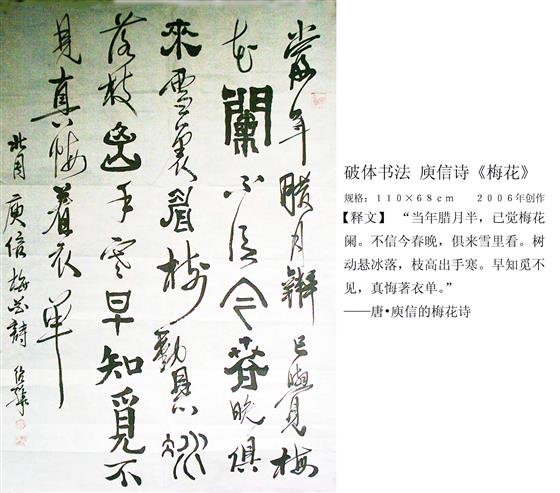 當年腊月半已覺梅
花闌不信今春晚俱
來雪裏看樹動懸冰
落枝高出手寒早知覓不
見真悔着衣單
北周庾信梅花詩
破体书法 庾信诗《梅花》
规格：110×68cm 2006年创作
【释文】 “当年腊月半，已觉梅花
阑。不信今春晚，俱来雪里看。树
动悬冰落，枝高出手寒。早知觅不
见，真悔著衣单。”
——唐•庾信的梅花诗